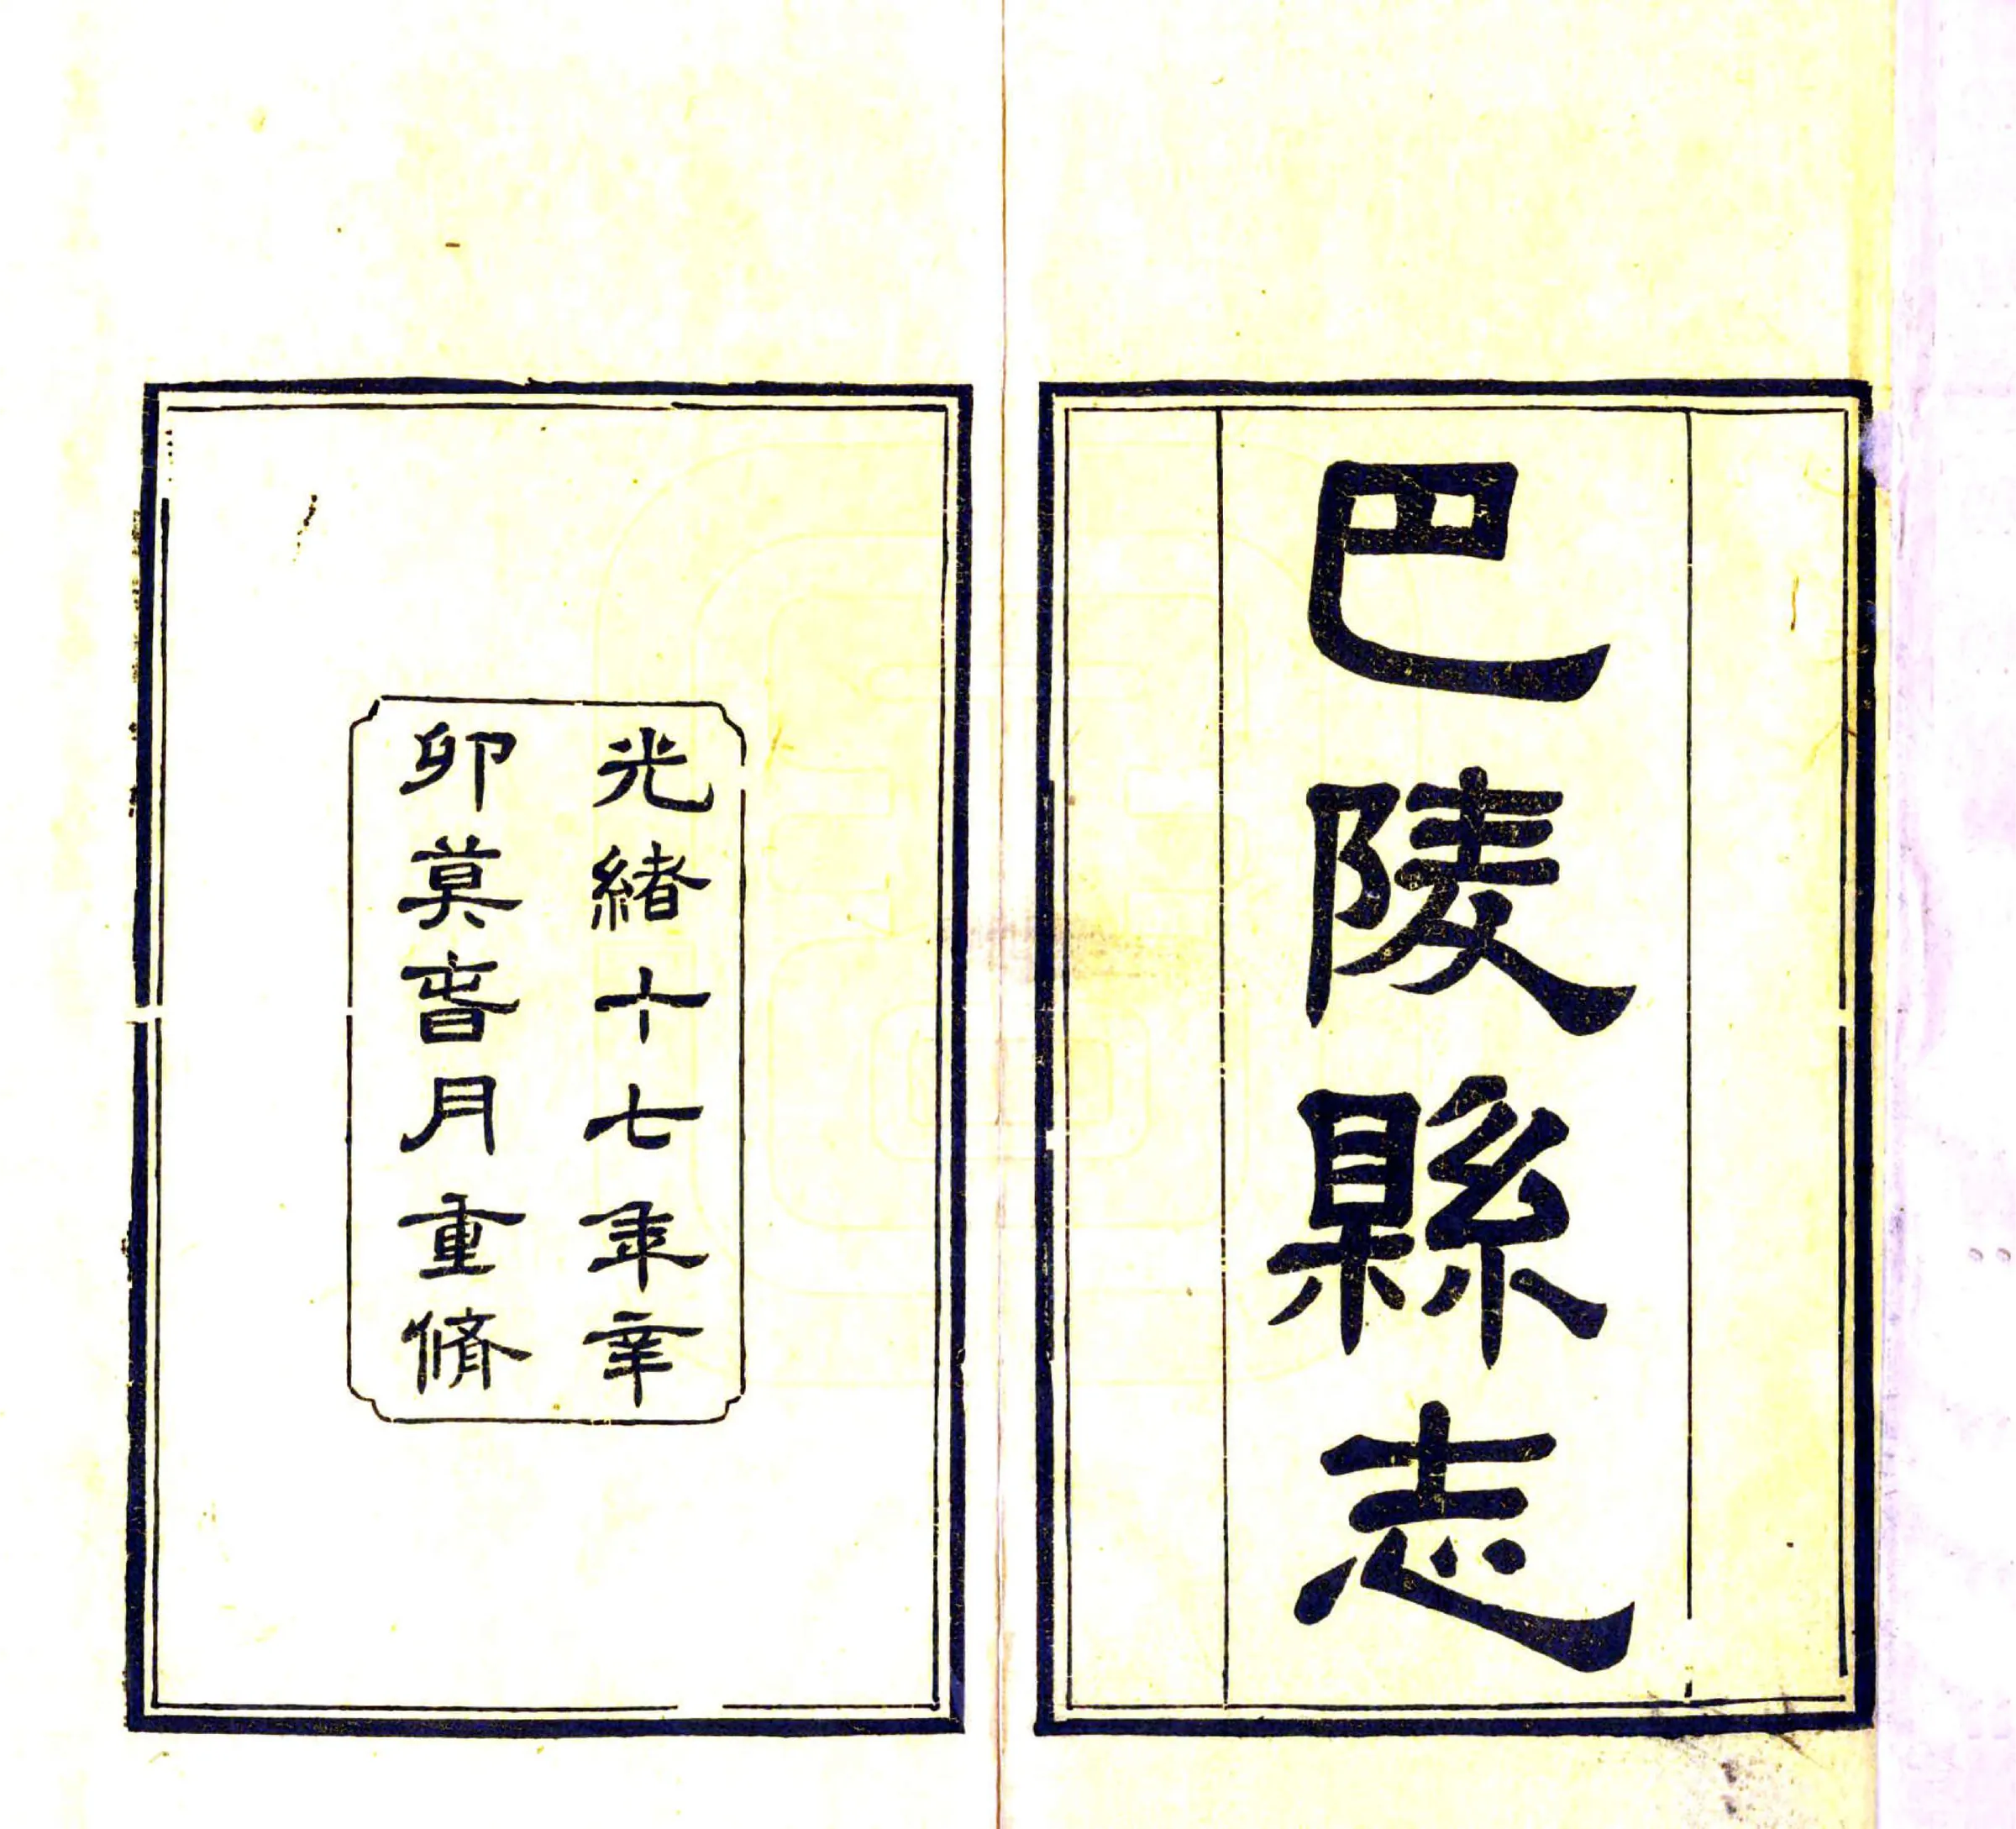 巴陵縣志
光緒十七年辛
卯莫萅月重脩